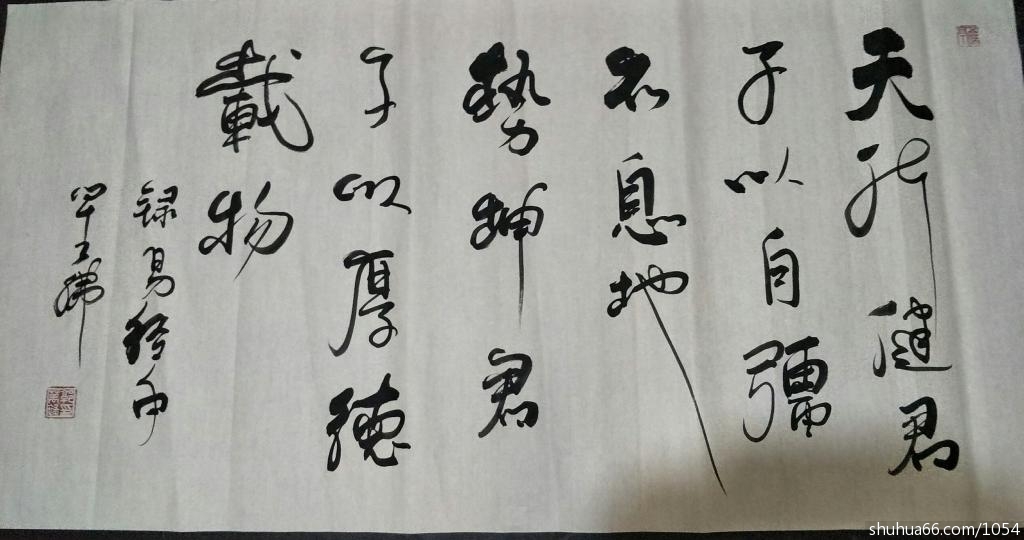 天行健君
子以自彊
不息地
勢坤君
子以厚德
載物
録易經句
shuhua66.com/1054